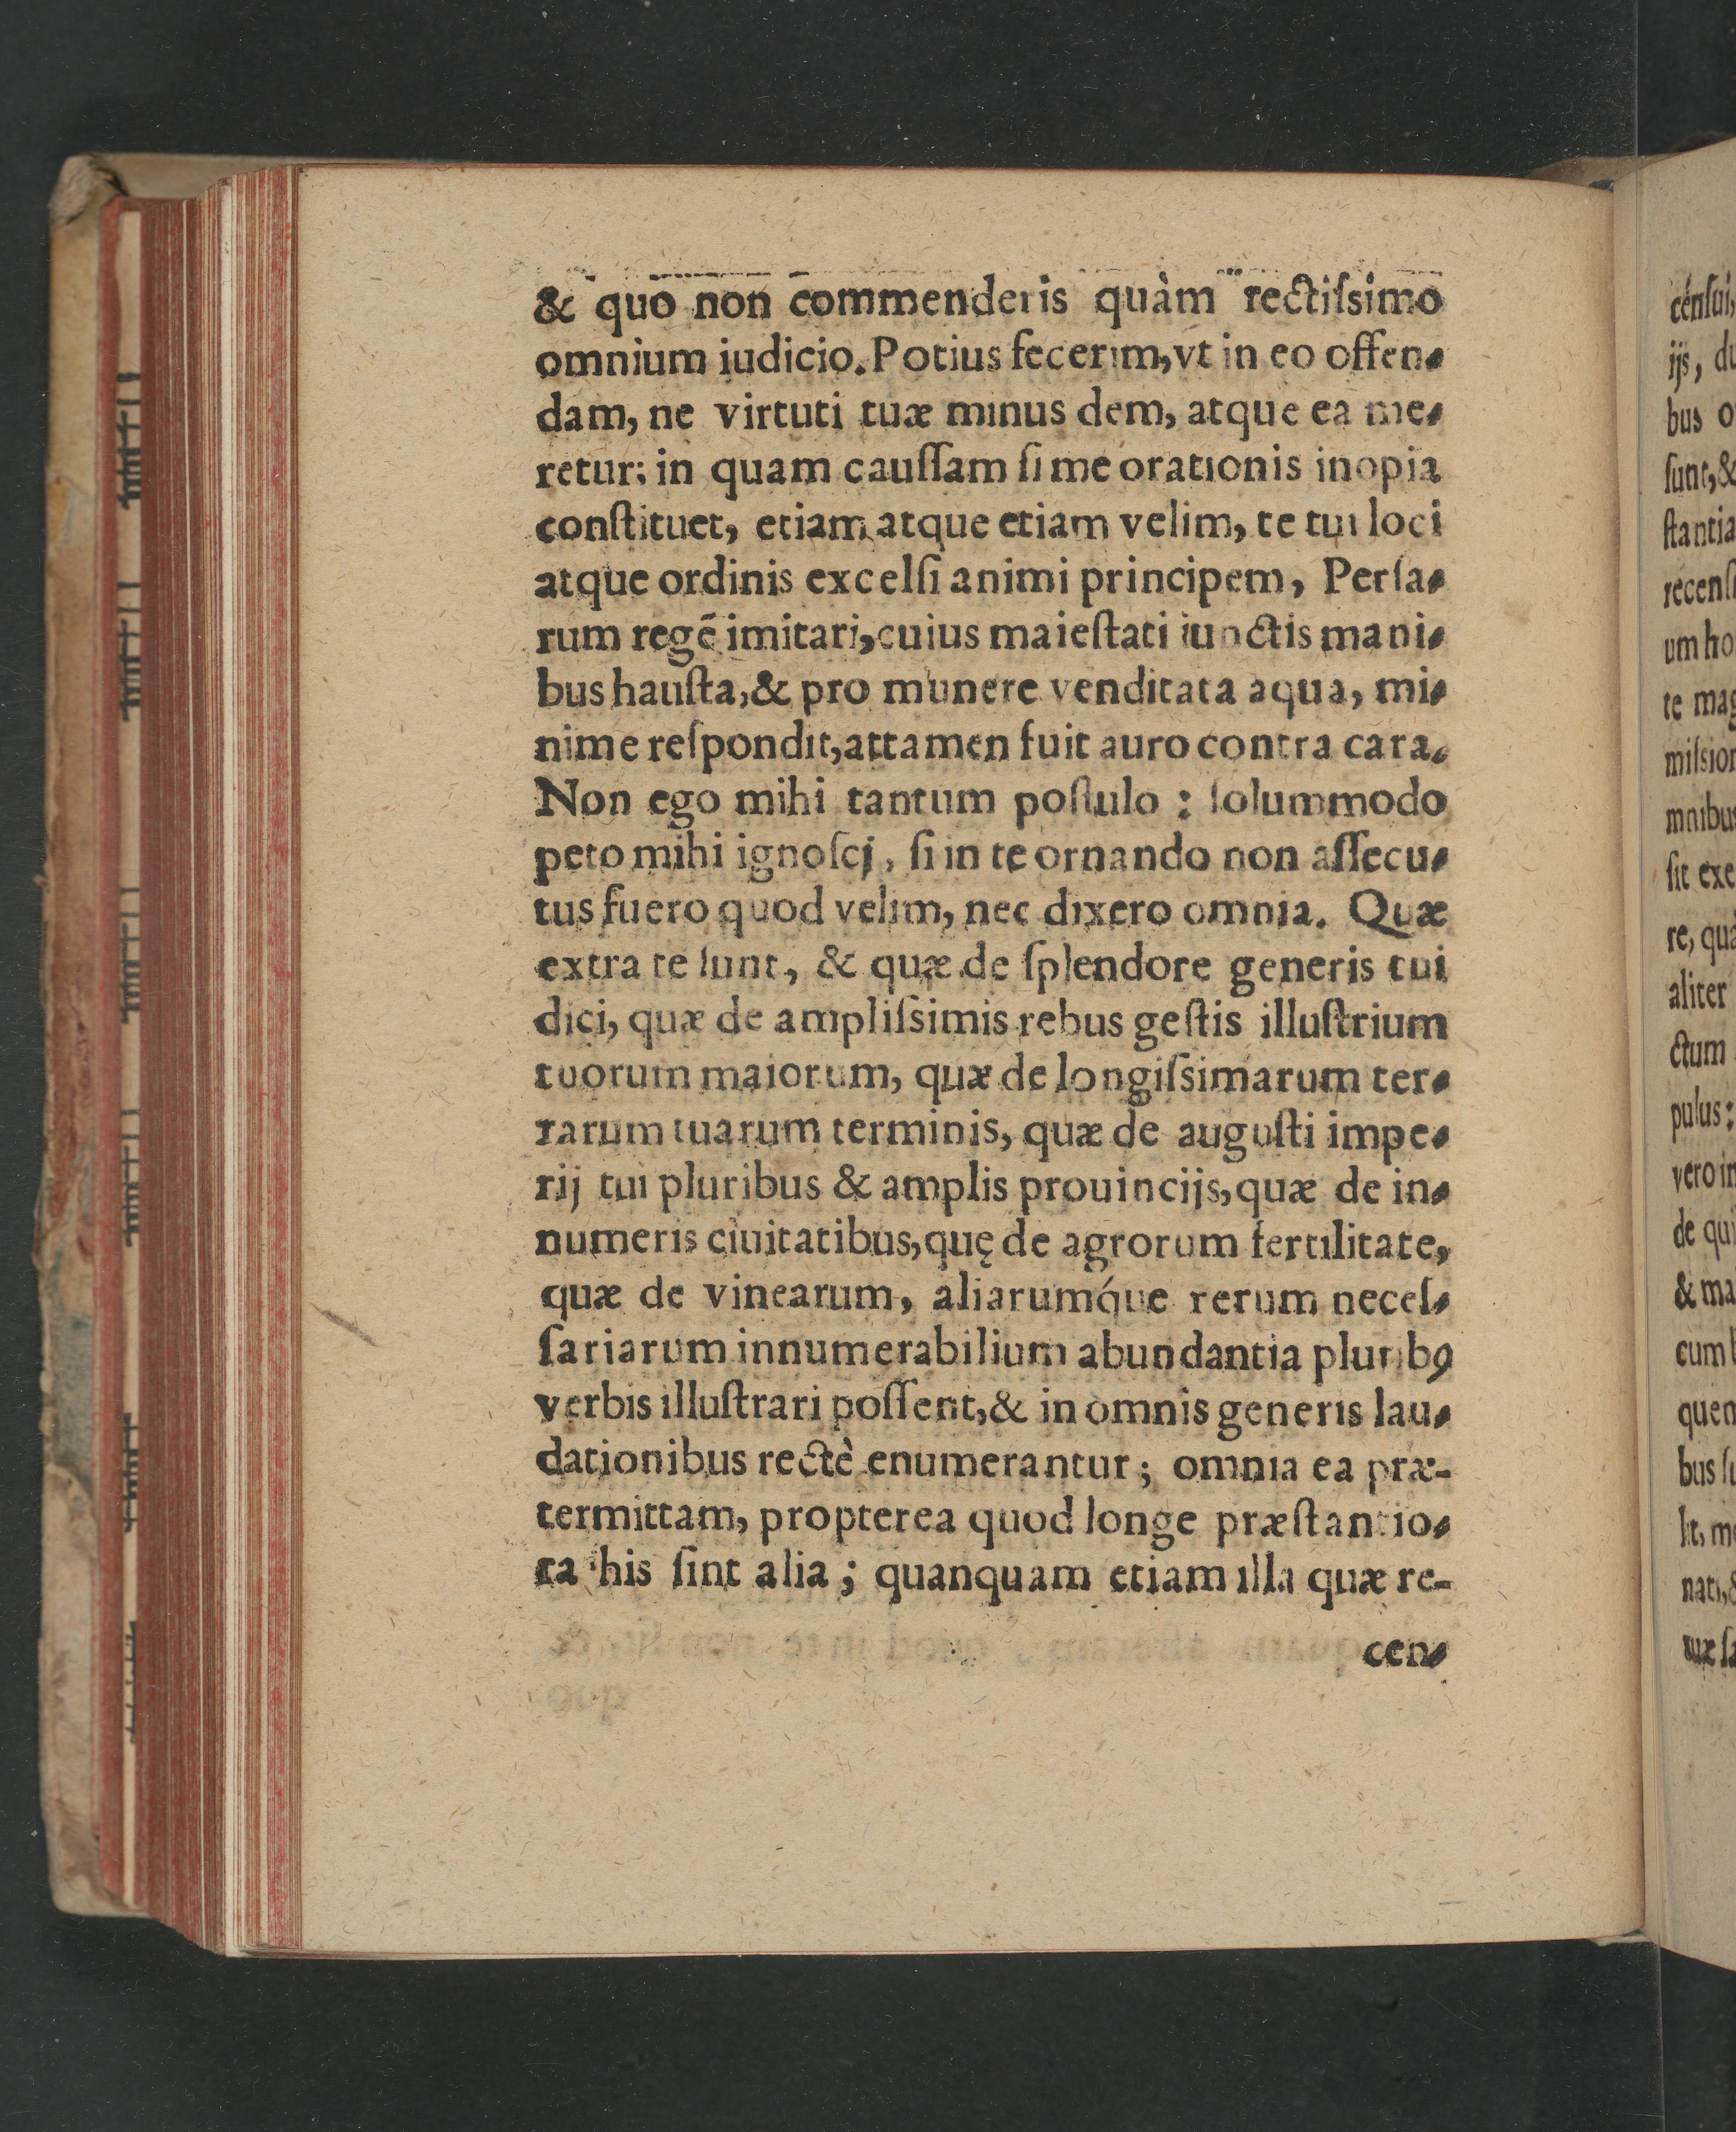 & quo non commenderis quàm rectiſsimo
omnium iudicio. Potius fecerim, vt in eo offen-
dam, ne virtuti tuæ minus dem, atque ea me-
retur: in quam cauſſam ſi me orationis inopia
conſtituet, etiam atque etiam velim, te tui loci
atque ordinis excelſi animi principem, Perſa-
rum regē imitari, cuius maieſtati iunctis mani-
bus hauſta, & pro munere venditata aqua, mi-
nime reſpondit, attamen fuit auro contra cara.
Non ego mihi tantum poſtulo : ſolummodo
peto mihi ignoſci, ſi in te ornando non aſſecu-
tus fuero quod velim, nec dixero omnia. Quæ
extra te ſunt, & quæ de ſplendore generis tui
dici, quæ de ampliſsimis rebus geſtis illuſtrium
tuorum maiorum, quæ de longiſsimarum ter-
rarum tuarum terminis, quæ de auguſti impe-
rij tui pluribus & amplis prouincijs, quæ de in-
numeris ciuitatibus, quę de agrorum fertilitate,
quæ de vinearum, aliarumq́ue rerum neceſ-
ſariarum innumerabilium abundantia plurib9
verbis illuſtrari poſſent, & in omnis generis lau-
dationibus rectè enumerantur ; omnia ea præ-
termittam, propterea quod longe præſtantio-
ra his ſint alia ; quanquam etiam illa quæ re-
cen-
cénſui,
ijs, du
bus o
ſunt, &
ſtantia
recenſ
um ho
te mag
miſsion
mnibus
ſit exe
re, qua
aliter
ctum
pulus:
vero in
de qui
& ma
cum
quen
bus ſu
lit, m
nati, &
tuæ ſa